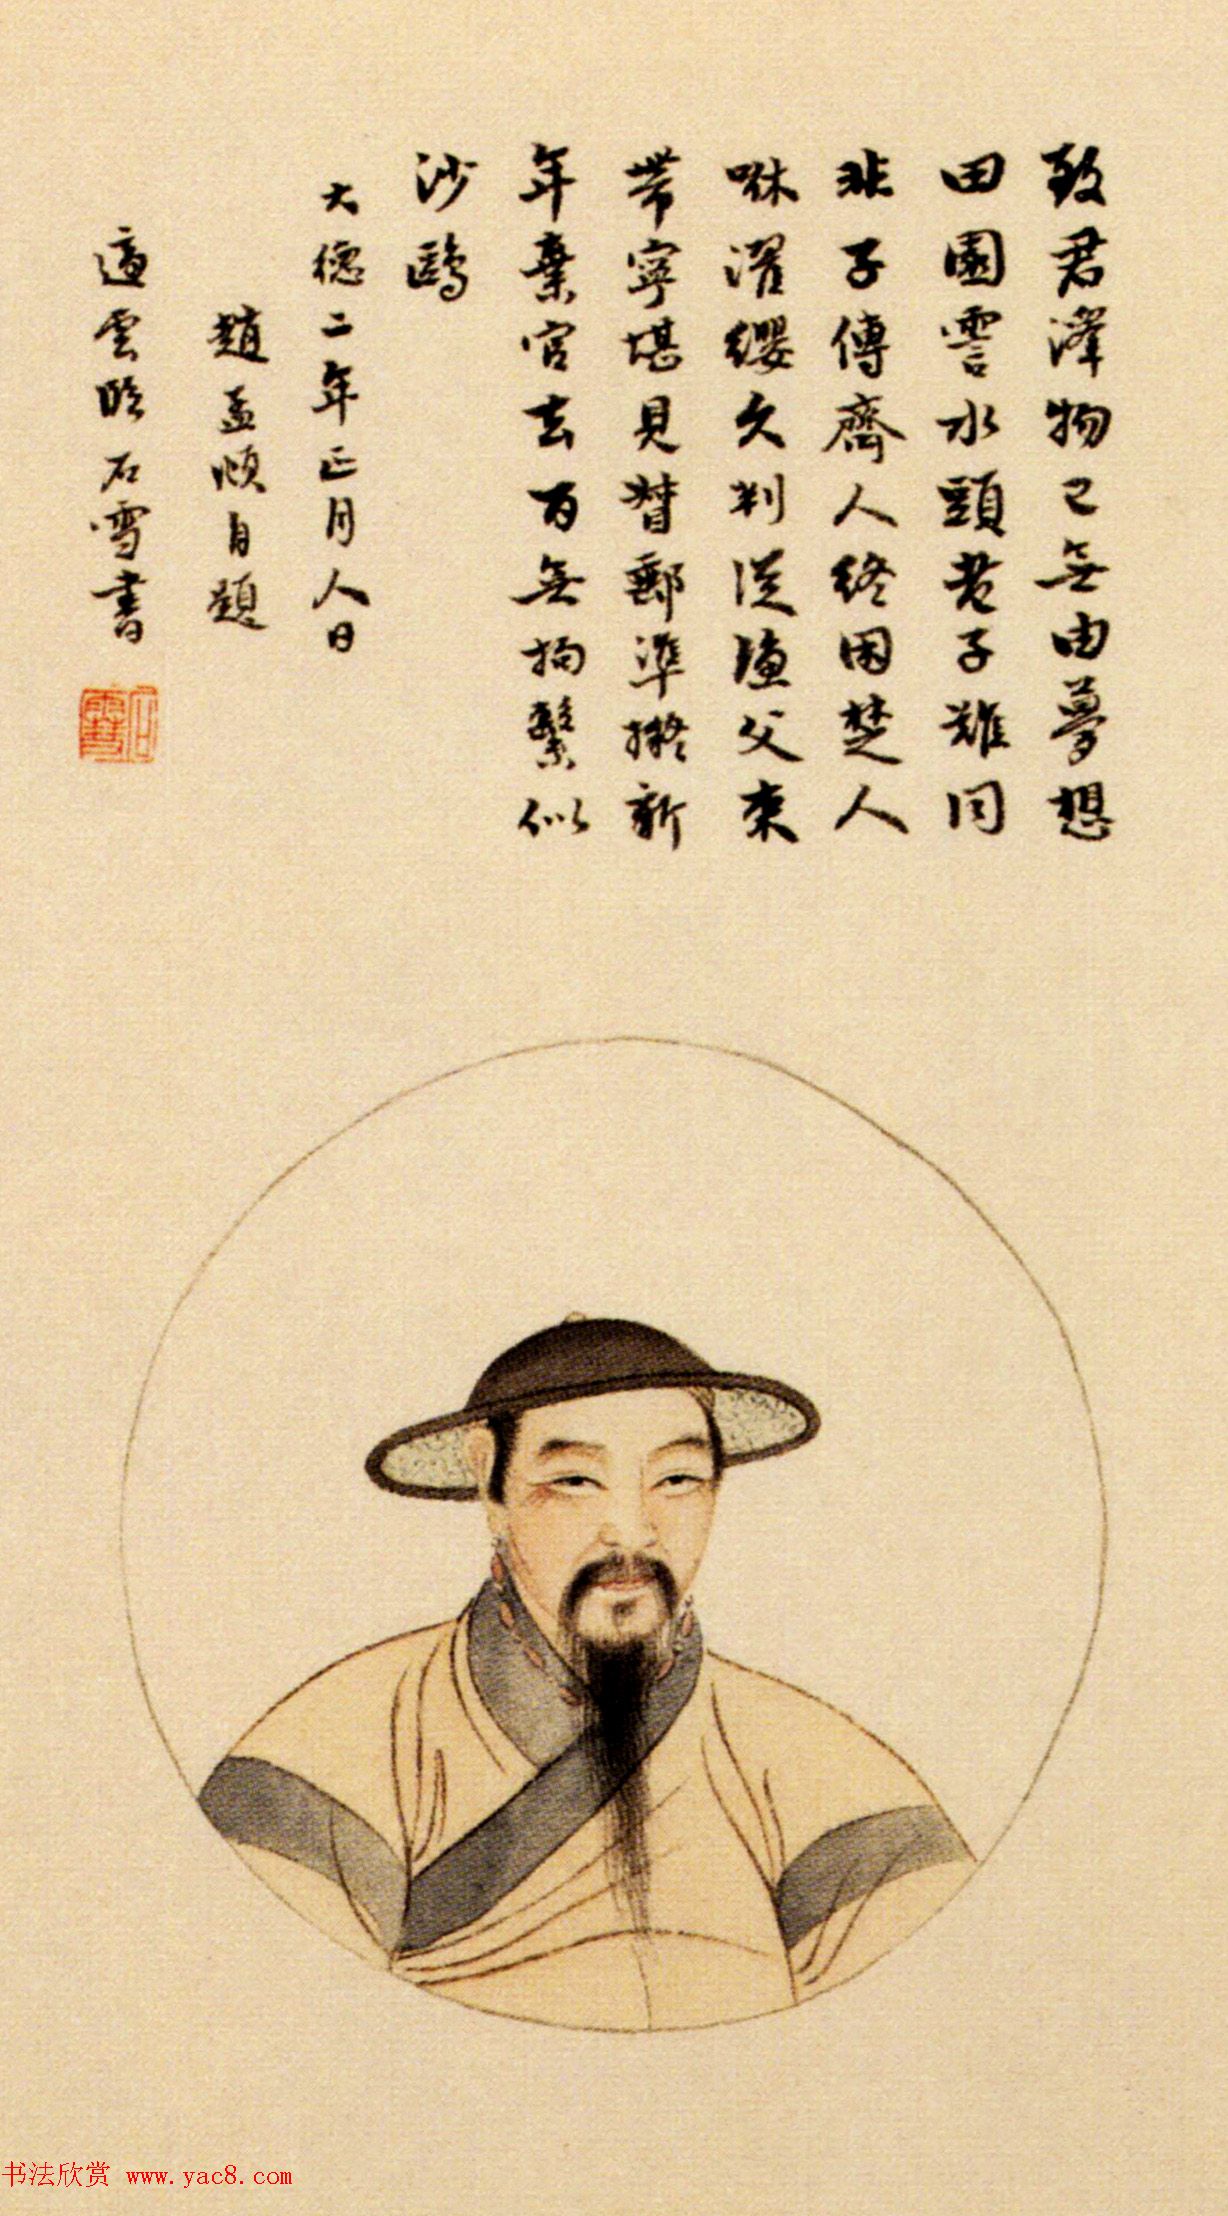 致君澤物已無由夢想
田園雲水頭老子難同
非子傳齊人終困楚人
咻濯纓久判從漁父束
帶寧堪見督郵準擬新
年棄官去百無拘繫似
沙鷗
大德二年正月人日
趙孟頫自題
適雲臨石雪書
石雪
书法欣赏 www.yac8.com